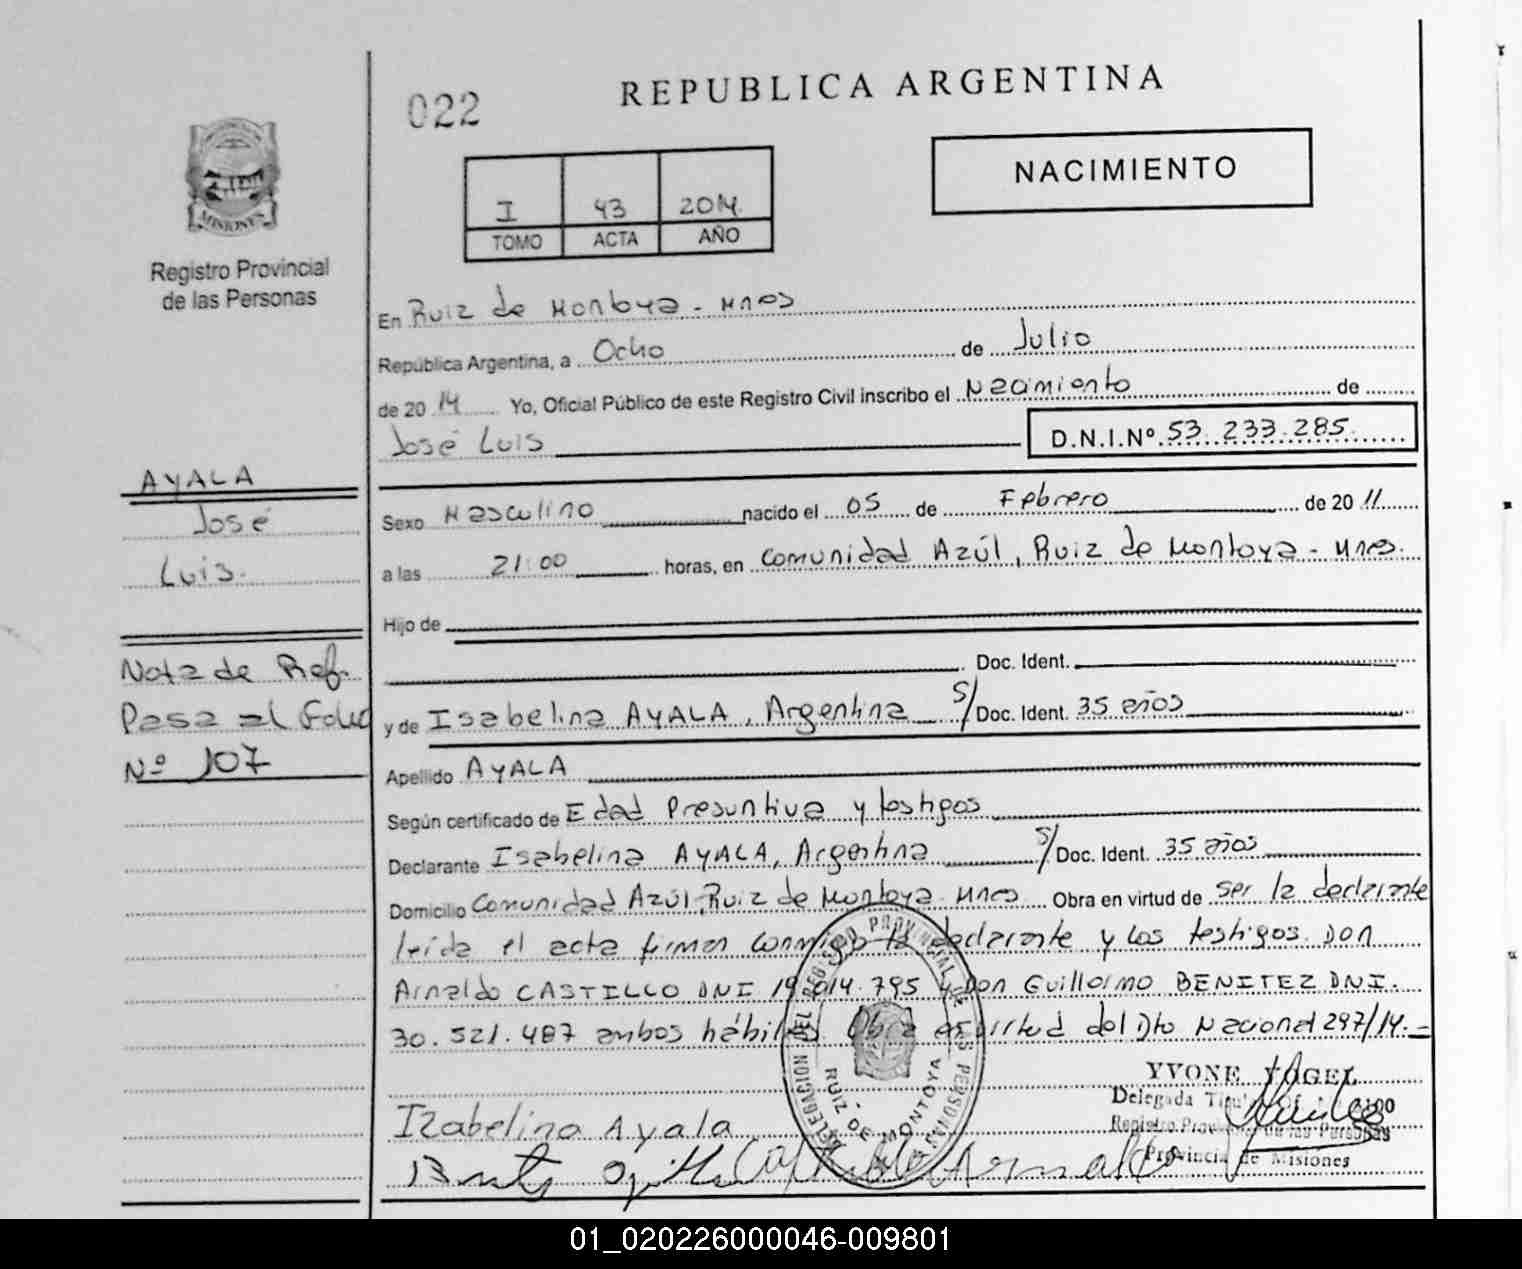 022
REPUBLICA ARGENTINA
NACIMIENTO
I 43 2014.
TOMO ACTA AÑO
MISIONES
Registro Provincial
de las Personas
En Ruiz de Montoya - Mnes
República Argentina, a Ocho de Julio
de 20 14 Yo, Oficial Público de este Registro Civil inscribo el Nacimiento de
José Luis D.N.I.Nº. 53.233.285.
AYALA
José
Luis.
Sexo Masculino nacido el 05 de Febrero de 20 11
a las 21:00 horas, en Comunidad Azúl, Ruiz de Montoya - Mnes.
Hijo de
Doc. Ident.
Nota de Ref.
Pasa al Folio
Nº 107
y de Isabelina AYALA, Argentina S/ Doc. Ident. 35 años
Apellido AYALA
Según certificado de Edad Presuntiva y testigos
Declarante Isabelina AYALA, Argentina S/ Doc. Ident. 35 años
Domicilio Comunidad Azúl, Ruiz de Montoya - Mnes Obra en virtud de ser la declarante
leída el acta firman conmigo la declarante y los testigos Don
Arnaldo CASTILLO DNI 19.014.795 y Don Guillermo BENITEZ DNI.
30.521.487 ambos hábiles. Obra en virtud del Dto Nacional 297/14.-
DELEGACION DEL REGISTRO PROVINCIAL DE LAS PERSONAS
RUIZ DE MONTOYA
YVONE VOGEL
Delegada
Registro Prov. de las Personas
Provincia de Misiones
Izabelina Ayala
Castillo Arnaldo
01_020226000046-009801